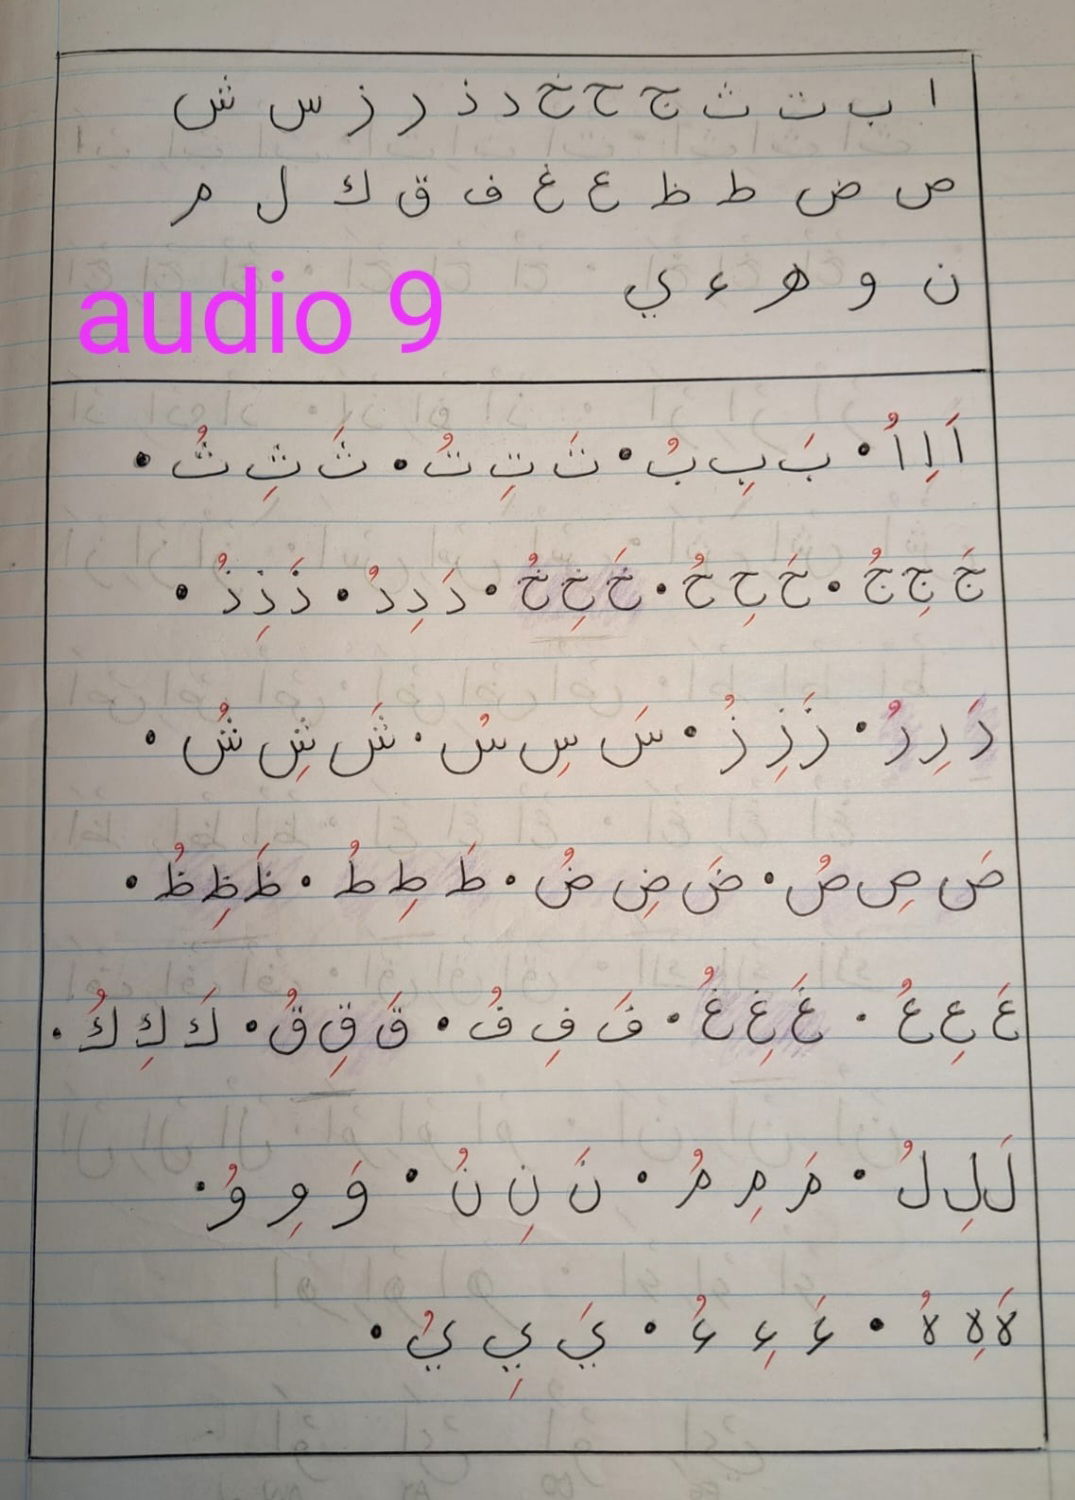 ا ب ت ث ج ح خ د ذ ر ز س ش
ص ض ط ظ ع غ ف ق ك ل م
ن و ه ء ي
audio 9
اَ اِ اُ • بَ بِ بُ • تَ تِ تُ • ثَ ثِ ثُ •
جَ جِ جُ • حَ حِ حُ • خَ خِ خُ • دَ دِ دُ • ذَ ذِ ذُ •
رَ رِ رُ • زَ زِ زُ • سَ سِ سُ • شَ شِ شُ •
صَ صِ صُ • ضَ ضِ ضُ • طَ طِ طُ • ظَ ظِ ظُ •
عَ عِ عُ • غَ غِ غُ • فَ فِ فُ • قَ قِ قُ • كَ كِ كُ •
لَ لِ لُ • مَ مِ مُ • نَ نِ نُ • وَ وِ وُ •
هَ هِ هُ • ءَ ءِ ءُ • يَ يِ يُ •